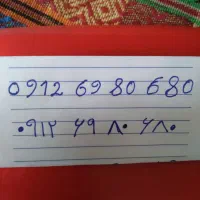 0912 69 80 680
۰۹۱۲ ۶۹ ۸۰ ۶۸۰